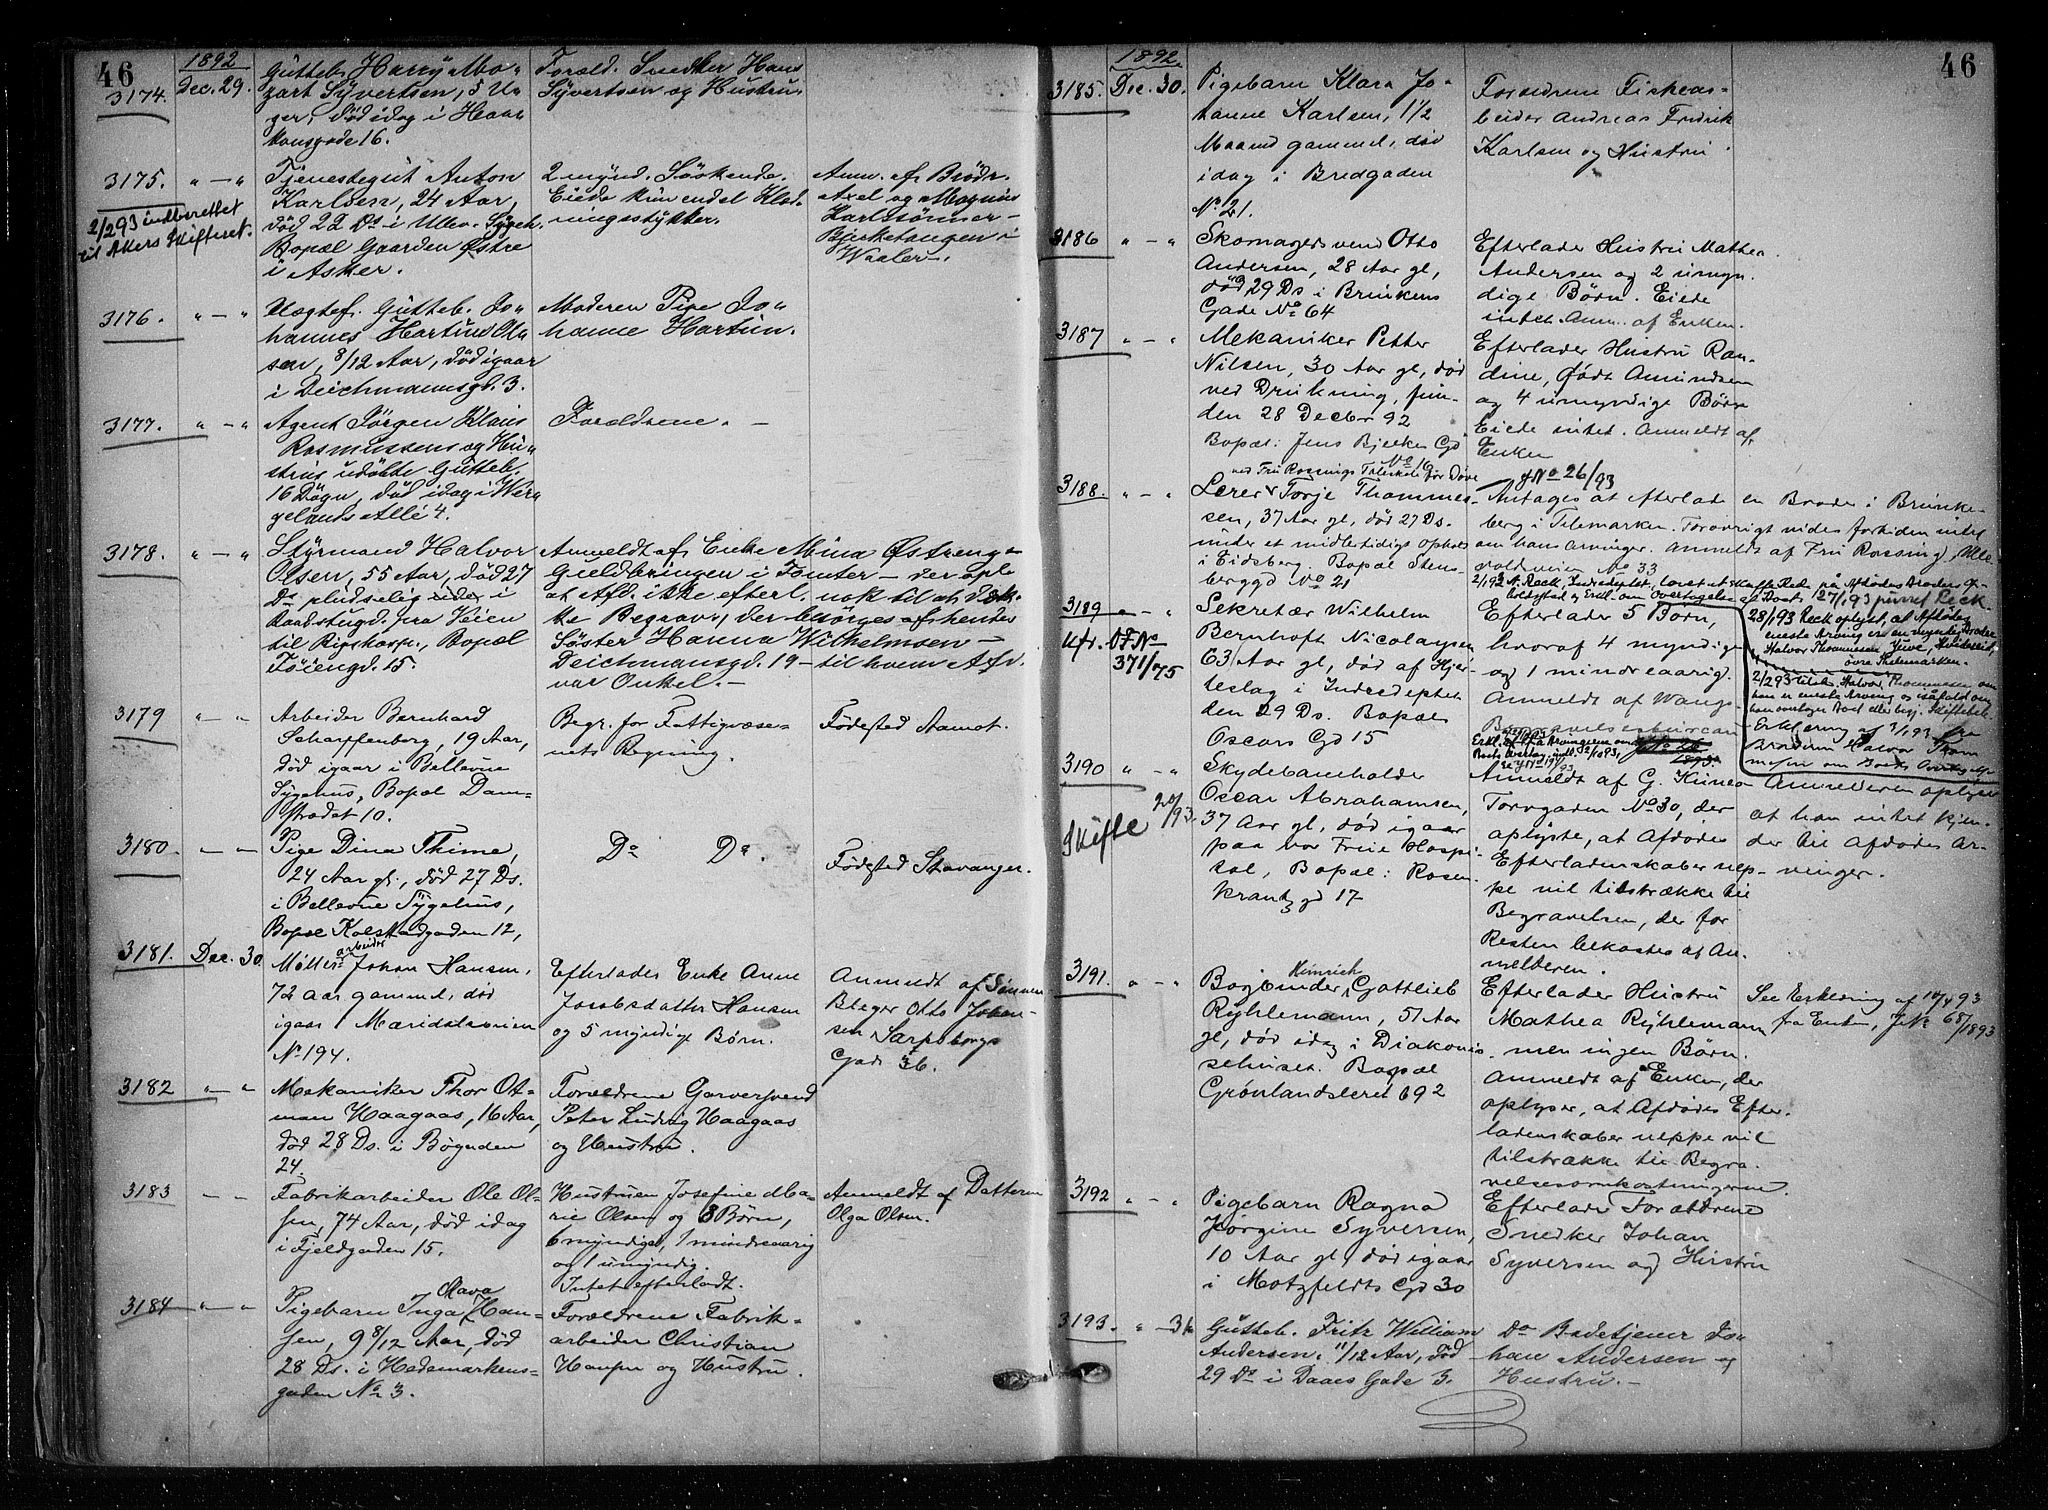 46
1892
3174. Dec. 29. Gutteb. Harry Mo-
zart Syvertsen, 5 U-
ger, død idag i Haa-
konsgade 16.
Foræld. Snedker Hans
Syvertsen og Hustru
3175. " — " Tjenestegut Anton
Karlsen, 24 Aar,
død 22 Ds i Ullev. Sygeh.
Bopæl Gaarden Østre
i Asker.
2 mynd. Søskende.
Eiede kun endel Klæd-
ningsstykker.
Anm. af Brødr.
Axel og Magnus
Karlssønner —
Bjerketangen i
Waaler.
2/293 indberettet
til Akers Skifteret.
3176. " — " Uægtef. Gutteb. Jo-
hannes Hartun Ol-
sen, 8/12 Aar, død igaar
i Deichmannsgd. 3.
Moderen Pige Jo-
hanne Hartun.
3177. " — " Agent Jørgen Klaus
Rasmussens og Hu-
strus udøbte Gutteb.
16 Døgn, død idag i Wer-
gelands Allé 4.
Forældrene. —
3178. " — " Styrmand Halvor
Olsen, 55 Aar, død 27
Ds pludselig i
Raadstugd. fra Veien
til Rigshosp., Bopæl
Tøiengd. 15.
Anmeldt af Enke Mina Østreng —
Guldbringen i Tomter — der opl.
at Afd. ikke efterl. nok til at dæk-
ke Begrav., der besørges af hendes
Søster Hanna Wilhelmsen —
Deichmansgd. 19 — til hvem Afd.
var Onkel. —
3179 " — " Arbeider Bernhard
Scharffenberg, 19 Aar,
død igaar i Bellevue
Sygehus, Bopæl Dam-
strædet 10.
Begr. for Fattigvæse-
nets Regning.
Fødested Aamot
3180. — " Pige Dina Thime,
24 Aar gl., død 27 Ds.
i Bellevue Sygehus,
Bopæl Kolstadgaden 12,
Do Do.
Fødested Stavanger.
3181. Dec. 30 Møllearbeider Johan Hansen,
72 aar gammel, død
igaar Maridalsveien
No 194.
Efterlader Enke Anne
Jacobsdatter Hansen
og 5 myndige Børn.
Anmeldt af Sønnen
Bleger Otto Johan-
sen Sarpsborgs
Gade 36.
3182 " — " Mekaniker Thor Ot-
man Haagaas, 16 Aar,
død 28 Ds. i Bøgaden
24.
Forældrene Garversvend
Peter Ludvig Haagaas
og Hustru.
3183 " — " Fabrikarbeider Ole Ol-
sen, 74 Aar, død idag
i Fjeldgaden 15.
Hustruen Josefine Ma-
rie Olsen og 8 Børn,
6 myndige, 1 mindreaarig
og 1 umyndig.
Intet efterladt.
Anmeldt af Datteren
Olga Olsen.
3184 " — " Pigebarn Inga Olava Han-
sen, 9 8/12 Aar, død
28 Ds. i Hedemarkens-
gaden No 3.
Forældrene Fabrik-
arbeider Christian
Hansen og Hustru.
46
1892
3185. Dec. 30. Pigebarn Klara Jo-
hanne Karlsen, 1½
Maaned gammel, død
idag i Bredgaden
No 21.
Forældrene Fiskear-
beider Andreas Fredrik
Karlsen og Hustru
3186 " — " Skomagersvend Otto
Andersen, 28 Aar gl,
død 29 Ds i Brinkens
Gade No 64
Efterlader Hustru Mathea
Andersen og 2 umyn-
dige Børn. Eiede
intet. Anm. af Enken.
3187 " — " Mekaniker Petter
Nilsen, 30 Aar gl, død
ved Drukning, fun-
den 28 Decbr 92
Bopæl: Jens Bjelkes Gd
No 16
Efterlader Hustru Ran-
dine, født Amundsen
og 4 umyndige Børn
Eiede intet. Anmeldt af
Enken
3188. " — " Lærer ved Fru Rossings Taleskole for Døve Torje Thommes-
sen, 37 Aar gl, død 27 Ds.
under et midlertidigt ophold
i Eidsberg. Bopæl Stens-
berggd No 21
JNo 26/93
Antages at efterlade en Broder i Brunke-
berg i Telemarken. Forøvrigt vides fortiden intet
om hans arvinger. Anmeldt af Fru Rossing, Ulle-
voldsveien No 33
28/193 Reck oplyst, at Afdødes
eneste Arving er en myndig Broder
Halvor Thommesen Juve, Hvideseid,
øvre Thelemarken.
Erklæring af 3/193 fra
Broderen Halvor Thom-
mesen om Boets Overtagelse
3189 " — " Sekretær Wilhelm
Bernhoft Nicolaysen
63 Aar gl, død af Hjer-
teslag i Indredeptet
den 29 Ds. Bopæl
Oscars Gd 15
Kfr. DFNo
371/75
Efterlader 5 Børn,
hvoraf 4 myndige
og 1 mindreaarig.
Anmeldt af Wangs
Begravelsesbureau
3190 " — " Skydebaneholder
Oscar Abrahamsen,
37 Aar gl, død igaar
paa Vor Frue Hospi-
tal, Bopæl: Rosen-
krantzgd 17
Skifte 20/93.
Anmeldt af G. Hansen
Torvgaden No 30, der
oplyste, at Afdødes
Efterladenskaber nep-
pe vil tilstrække til
Begravelsen, der for
Resten bekostes af An-
melderen.
Anmelderen oplyser
at han intet kjen-
der til Afdødes Ar-
vinger.
3191. " — " Bogbinder Heinrich Gottlieb
Rühlemann, 51 Aar
gl, død idag i Diakonis-
sehuset. Bopæl
Grønlandsleret 69 2
Efterlader Hustru
Mathea Rühlemann
men ingen Børn.
Anmeldt af Enken, der
oplyser, at Afdødes Efter-
ladenskaber neppe vil
tilstrække til Begra-
velsesomkostningerne.
See Erklæring af 14/4 93
fra Enken, JNo 68/1893
3192 " — " Pigebarn Ragna
Jørgine Syversen,
10 Aar gl, død igaar
i Motzfeldts Gd 30
Efterlader Forældrene
Snedker Johan
Syversen og Hustru
3193. " — 31 Gutteb. Fritz William
Andersen, 11/12 Aar, død
29 Ds i Daaes Gade 3.
Do Badetjener Jo-
han Andersen og
Hustru. —